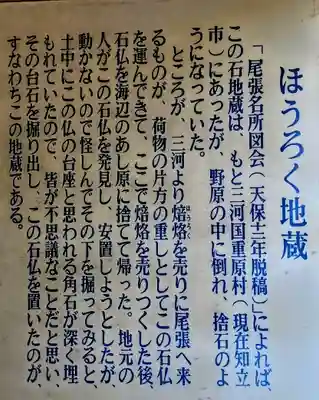 ほうろく地蔵
「尾張名所図会(天保十二年脱稿)」によれば、
この石地蔵は、もと三河国重原村(現在知立
市)にあったが、野原の中に倒れ、捨石のよ
うになっていた。
ところが、三河より焙烙を売りに尾張へ来
るものが、荷物の片方の重しとしてこの石仏
を運んできて、ここで焙烙を売りつくした後、
石仏を海辺のあし原に捨てて帰った。地元の
人がこの石仏を発見し、安置しようとしたが、
動かないので怪しんでその下を掘ってみると、
土中にこの仏の台座と思われる角石が深く埋
もれていたので、皆が不思議なことだと思い、
その台石を掘り出し、この石仏を置いたのが、
すなわちこの地蔵である。